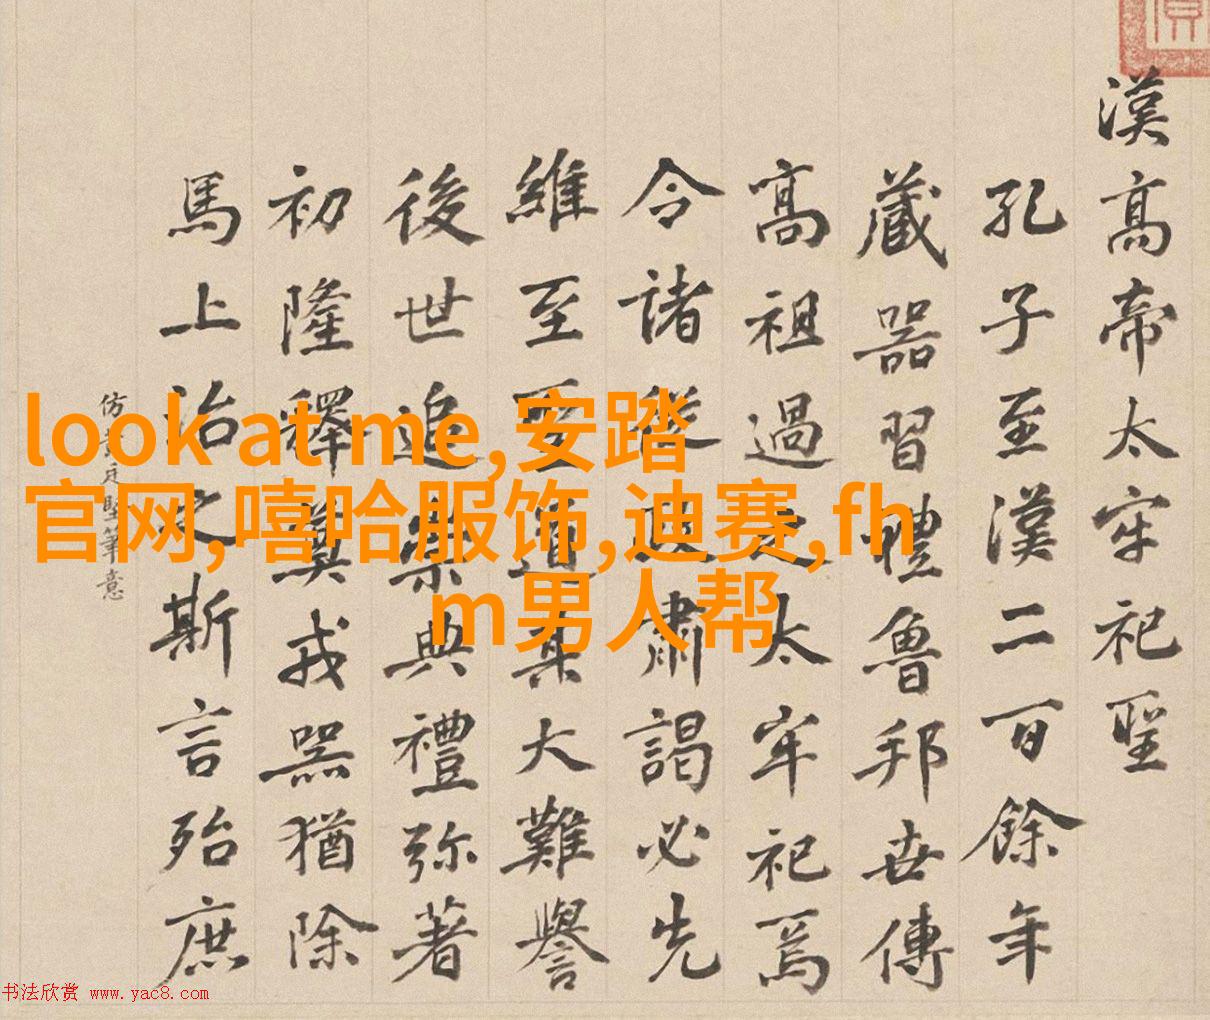 漢高帝太牢祀聖
孔子至漢二百餘年
藏器習禮魯邦世傳
高祖過之太牢祀焉
令諸從政肅謁必先
維至聖道莫大難譽
後世追崇典禮弥著
初隆釋奠戎器猶除
馬上治之斯言殆庶
仿黄庭堅筆意
look at me,安踏
官网,嘻哈服饰,迪赛,fh
m男人帮
书法欣赏 www.yac8.com